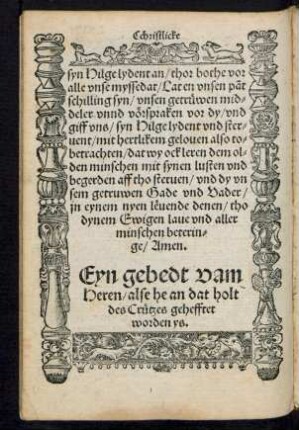 Christlicke
syn Hilge lydent an / thor bothe vor
alle vnse myssedat / Lat en vnsen pāt
schilling syn / vnsen getrüwen mid-
deler vnnd vörspraken vor dy / vnd
giff vns / syn Hilge lydent vnd ster-
uent / mit hertlikem gelouen also to-
betrachten / dat wy ock leren dem ol-
den minschen mit synen lusten vnd
begerden aff tho steruen / vnd dy vn
sem getruwen Gade vnd Vader /
jn eynem nyen leuende denen / tho
dynem Ewigen laue vnd aller
minschen beterin-
ge / Amen.
Eyn gebedt vam
Heren / alse he an dat holt
des Crützes gehefftet
worden ys.